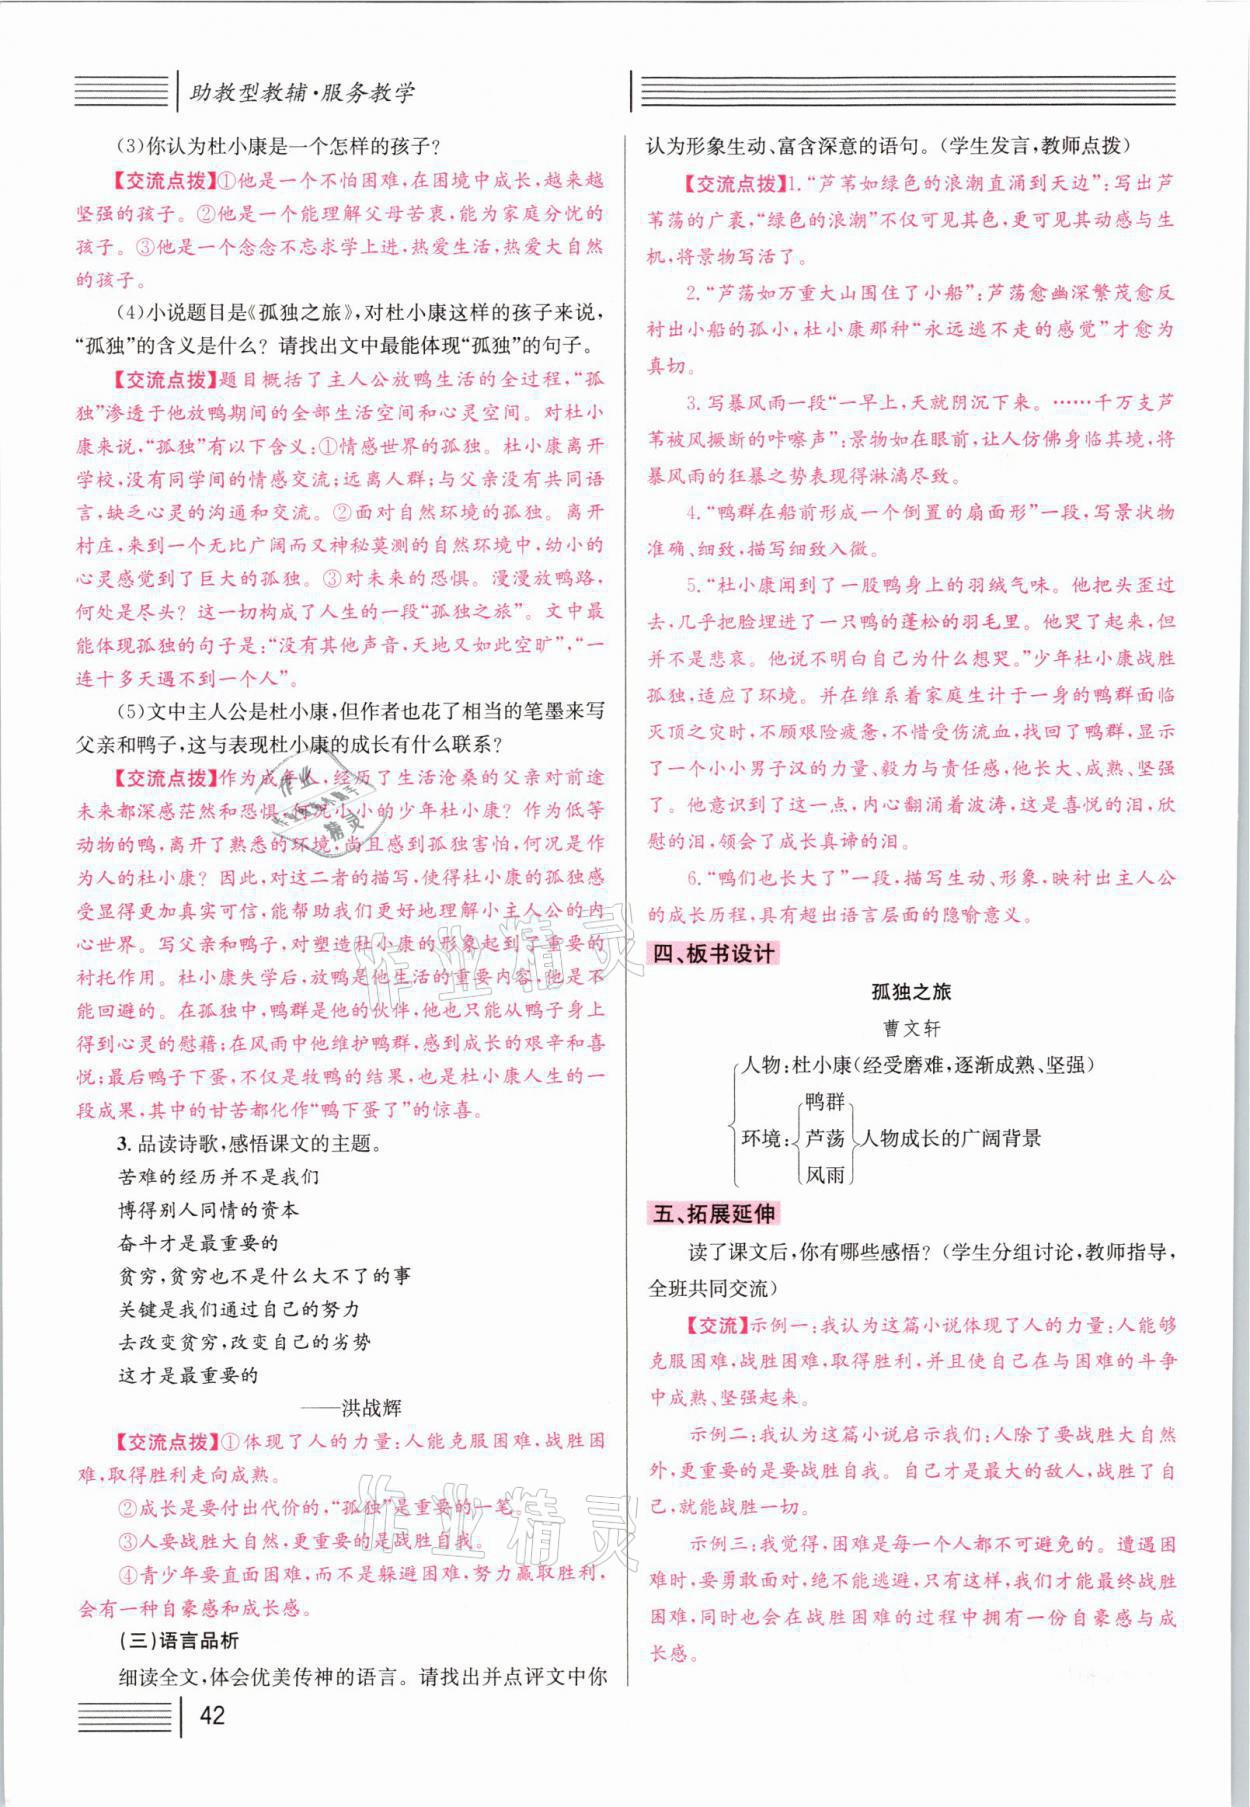 助教型教辅·服务教学
(3)你认为杜小康是一个怎样的孩子?
【交流点拨】①他是一个不怕困难,在困境中成长,越来越
坚强的孩子。②他是一个能理解父母苦衷,能为家庭分忧的
孩子。③他是一个念念不忘求学上进,热爱生活,热爱大自然
的孩子。
(4)小说题目是《孤独之旅》,对杜小康这样的孩子来说,
“孤独”的含义是什么?请找出文中最能体现“孤独”的句子。
【交流点拨】题目概括了主人公放鸭生活的全过程,“孤
独”渗透于他放鸭期间的全部生活空间和心灵空间。对杜小
康来说,“孤独”有以下含义:①情感世界的孤独。杜小康离开
学校,没有同学间的情感交流;远离人群;与父亲没有共同语
言,缺乏心灵的沟通和交流。②面对自然环境的孤独。离开
村庄,来到一个无比广阔而又神秘莫测的自然环境中,幼小的
心灵感觉到了巨大的孤独。③对未来的恐惧。漫漫放鸭路,
何处是尽头?这一切构成了人生的一段“孤独之旅”。文中最
能体现孤独的句子是:“没有其他声音,天地又如此空旷”,“一
连十多天遇不到一个人”。
(5)文中主人公是杜小康,但作者也花了相当的笔墨来写
父亲和鸭子,这与表现杜小康的成长有什么联系?
【交流点拨】作为成年人,经历了生活沧桑的父亲对前途
未来都深感茫然和恐惧,何况小小的少年杜小康?作为低等
动物的鸭,离开了熟悉的环境,尚且感到孤独害怕,何况是作
为人的杜小康?因此,对这二者的描写,使得杜小康的孤独感
受显得更加真实可信,能帮助我们更好地理解小主人公的内
心世界。写父亲和鸭子,对塑造杜小康的形象起到了重要的
衬托作用。杜小康失学后,放鸭是他生活的重要内容,是不
能回避的。在孤独中,鸭群是他的伙伴,他也只能从鸭子身上
得到心灵的慰藉;在风雨中他维护鸭群,感到成长的艰辛和喜
悦;最后鸭子下蛋,不仅是牧鸭的结果,也是杜小康人生的一
段成果,其中的甘苦都化作“鸭下蛋了”的惊喜。
3.品读诗歌,感悟课文的主题。
苦难的经历并不是我们
博得别人同情的资本
奋斗才是最重要的
贫穷,贫穷也不是什么大不了的事
关键是我们通过自己的努力
去改变贫穷,改变自己的劣势
这才是最重要的
——洪战辉
【交流点拨】①体现了人的力量:人能克服困难,战胜困
难,取得胜利走向成熟。
②成长是要付出代价的,“孤独”是重要的一笔。
③人要战胜大自然,更重要的是战胜自我。
④青少年要直面困难,而不是躲避困难,努力赢取胜利,
会有一种自豪感和成长感。
(三)语言品析
细读全文,体会优美传神的语言。请找出并点评文中你
42
认为形象生动、富含深意的语句。(学生发言,教师点拨)
【交流点拨】1.“芦苇如绿色的浪潮直涌到天边”:写出芦
苇荡的广袤,“绿色的浪潮”不仅可见其色,更可见其动感与生
机,将景物写活了。
2.“芦荡如万重大山围住了小船”:芦荡愈幽深繁茂愈反
衬出小船的孤小,杜小康那种“永远逃不走的感觉”才愈为
真切。
3.写暴风雨一段“一早上,天就阴沉下来。……千万支芦
苇被风撅断的咔嚓声”:景物如在眼前,让人仿佛身临其境,将
暴风雨的狂暴之势表现得淋漓尽致。
4.“鸭群在船前形成一个倒置的扇面形”一段,写景状物
准确、细致,描写细致入微。
5.“杜小康闻到了一股鸭身上的羽绒气味。他把头歪过
去,几乎把脸埋进了一只鸭的蓬松的羽毛里。他哭了起来,但
并不是悲哀。他说不明白自己为什么想哭。”少年杜小康战胜
孤独,适应了环境。并在维系着家庭生计于一身的鸭群面临
灭顶之灾时,不顾艰险疲惫,不惜受伤流血,找回了鸭群,实现
了一个小小男子汉的力量、毅力与责任感,他长大、成熟、坚强
了。他意识到了这一点,内心翻涌着波涛,这是喜悦的泪,欣
慰的泪,领会了成长真谛的泪。
6.“鸭们也长大了”一段,描写生动、形象,映衬出主人公
的成长历程,具有超出语言层面的隐喻意义。
四、板书设计
孤独之旅
曹文轩
人物:杜小康(经受磨难,逐渐成熟、坚强)
鸭群
环境:芦荡 人物成长的广阔背景
风雨
五、拓展延伸
读了课文后,你有哪些感悟?(学生分组讨论,教师指导,
全班共同交流)
【交流】示例一:我认为这篇小说体现了人的力量:人能够
克服困难,战胜困难,取得胜利,并且使自己在与困难的斗争
中成熟、坚强起来。
示例二:我认为这篇小说启示我们:人除了要战胜大自然
外,更重要的是要战胜自我。自己才是最大的敌人,战胜了自
己,就能战胜一切。
示例三:我觉得,困难是每一个人都不可避免的。遭遇困
难时,要勇敢面对,绝不能逃避,只有这样,我们才能最终战胜
困难,同时也会在战胜困难的过程中拥有一份自豪感与成
长感。
作业精灵
作业精灵
作业
精灵